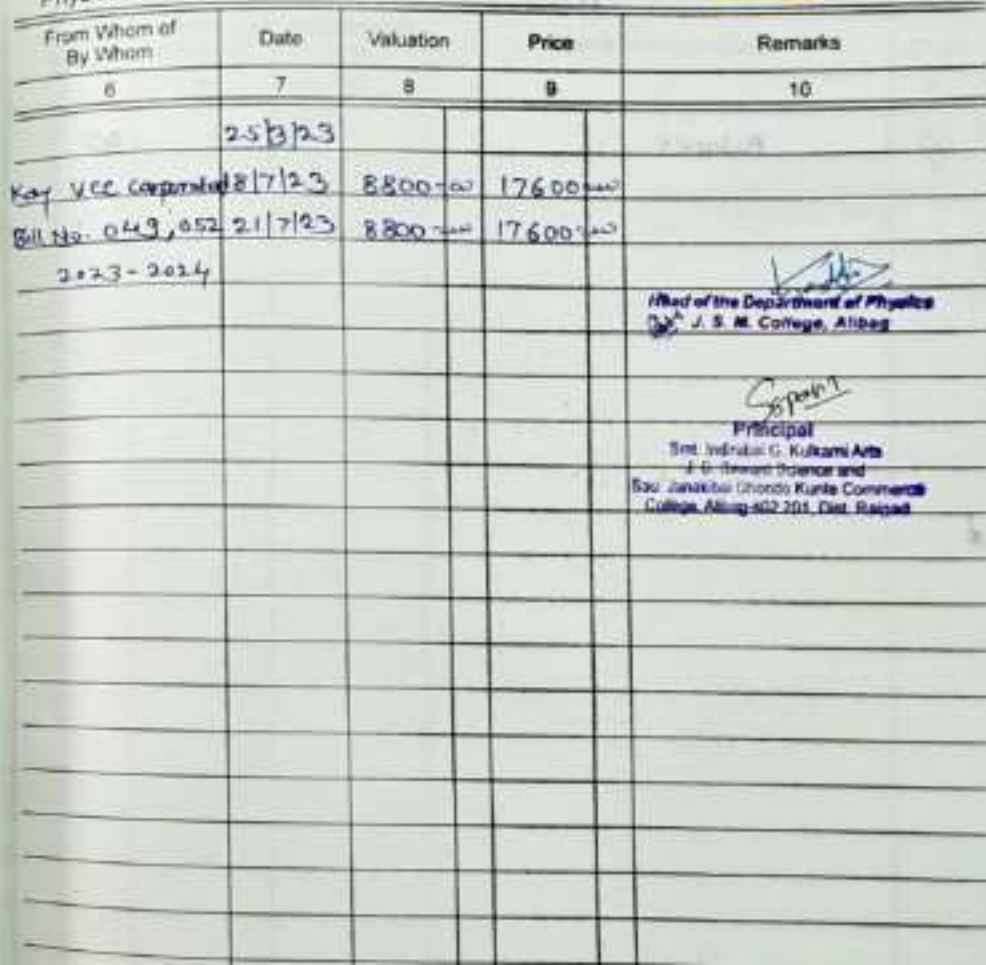 From Whom of By Whom Date Valuation Price Remarks
6 7 8 9 10
25/3/23
Kay Vee 18/7/23 8800-00 17600-00
Bill No. 049, 052 21/7/23 8800-00 17600-00
2023-2024
Head of the Department of Physics
J. S. M. College, Alibag
Principal
Smt. Indirabai G. Kulkarni Arts
J. B. Sawant Science and
Sau. Janakibai Dhondo Kunte Commerce
College, Alibag-402 201, Dist. Raigad